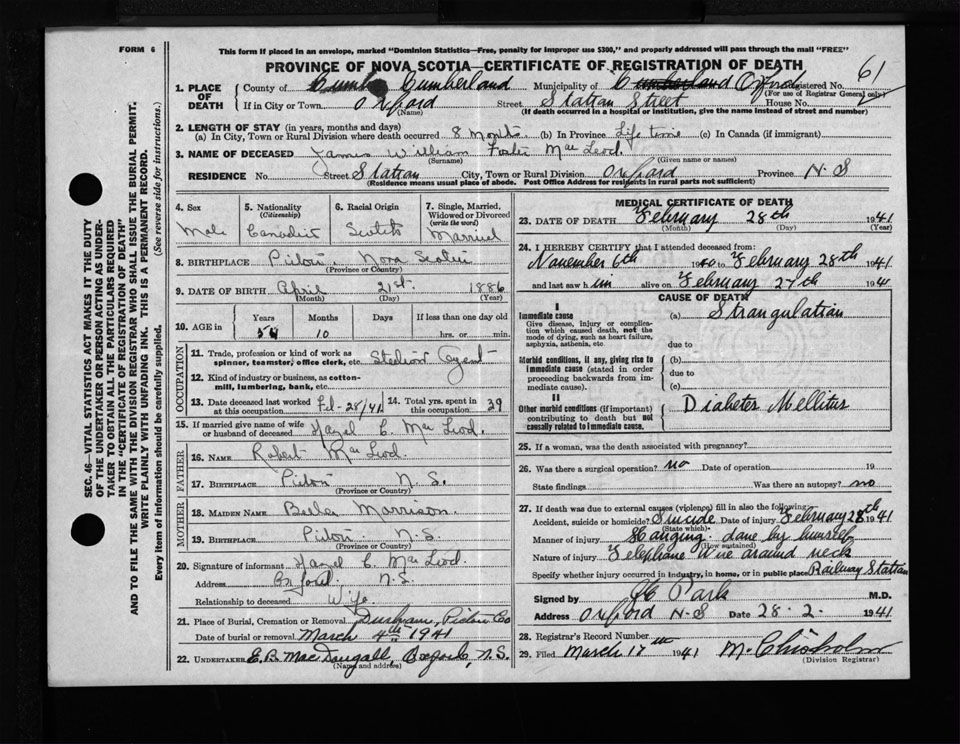 FORM 6
This form if placed in an envelope, marked "Dominion Statistics—Free, penalty for improper use $300," and properly addressed will pass through the mail "FREE"
PROVINCE OF NOVA SCOTIA—CERTIFICATE OF REGISTRATION OF DEATH
61
1. PLACE OF DEATH
County of Cumberland Municipality of Cumberland Oxford Registered No.
(For use of Registrar General only)
If in City or Town Oxford Street Station Street House No.
(Name) (If death occurred in a hospital or institution, give the name instead of street and number)
2. LENGTH OF STAY (in years, months and days)
(a) In City, Town or Rural Division where death occurred 8 Months (b) In Province Life time (c) In Canada (if immigrant)
3. NAME OF DECEASED James William Foster Mac Leod.
(Surname) (Given name or names)
RESIDENCE No. Street Station City, Town or Rural Division Oxford Province N-S
(Residence means usual place of abode. Post Office Address for residents in rural parts not sufficient)
4. Sex
Male
5. Nationality (Citizenship)
Canadian
6. Racial Origin
Scotch
7. Single, Married, Widowed or Divorced (write the word)
Married
8. BIRTHPLACE Pictou. Nova Scotia
(Province or Country)
9. DATE OF BIRTH April 21st. 1886
(Month) (Day) (Year)
10. AGE in
Years Months Days If less than one day old
54 10 hrs. or min.
OCCUPATION
11. Trade, profession or kind of work as spinner, teamster, office clerk, etc. Station Agent
12. Kind of industry or business, as cotton-mill, lumbering, bank, etc.
13. Date deceased last worked at this occupation Feb-28/41
14. Total yrs. spent in this occupation 39
15. If married give name of wife or husband of deceased Hazel C. Mac Leod.
FATHER
16. NAME Robert Mac Leod.
17. BIRTHPLACE Pictou N.S.
(Province or Country)
MOTHER
18. MAIDEN NAME Beula Morrison.
19. BIRTHPLACE Pictou N.S.
(Province or Country)
20. Signature of informant Hazel C. Mac Leod.
Address Oxford. N.S.
Relationship to deceased Wife.
21. Place of Burial, Cremation or Removal Durham, Pictou Co
Date of burial or removal March 4th 1941
22. UNDERTAKER E.B. MacDougall, Oxford, N.S.
(Name and address)
MEDICAL CERTIFICATE OF DEATH
23. DATE OF DEATH February 28th 1941
(Month) (Day) (Year)
24. I HEREBY CERTIFY that I attended deceased from:
November 6th 1940 to February 28th 1941
and last saw him alive on February 27th 1941
CAUSE OF DEATH
I
Immediate cause
Give disease, injury or complication which caused death, not the mode of dying, such as heart failure, asphyxia, asthenia, etc
(a) Strangulation
due to
Morbid conditions, if any, giving rise to immediate cause (stated in order proceeding backwards from immediate cause).
(b)
due to
(c)
II
Other morbid conditions (if important) contributing to death but not causally related to immediate cause.
Diabetes Mellitus
25. If a woman, was the death associated with pregnancy?
26. Was there a surgical operation? no Date of operation 19
State findings Was there an autopsy? no
27. If death was due to external causes (violence) fill in also the following:
Accident, suicide or homicide? Suicide Date of injury February 28th 1941
(State which)
Manner of injury Hanging. done by himself
(How sustained)
Nature of injury Telephone Wire around neck
Specify whether injury occurred in industry, in home, or in public place Railway Station
Signed by Park M.D.
Address Oxford N-S Date 28-2- 1941
28. Registrar's Record Number
29. Filed March 17 1941 M. Chisholm
(Division Registrar)
SEC. 46—VITAL STATISTICS ACT MAKES IT THE DUTY
OF THE UNDERTAKER OR PERSON ACTING AS UNDER-
TAKER TO OBTAIN ALL THE PARTICULARS REQUIRED
IN THE "CERTIFICATE OF REGISTRATION OF DEATH"
AND TO FILE THE SAME WITH THE DIVISION REGISTRAR WHO SHALL ISSUE THE BURIAL PERMIT.
WRITE PLAINLY WITH UNFADING INK. THIS IS A PERMANENT RECORD.
Every item of information should be carefully supplied. (See reverse side for instructions.)